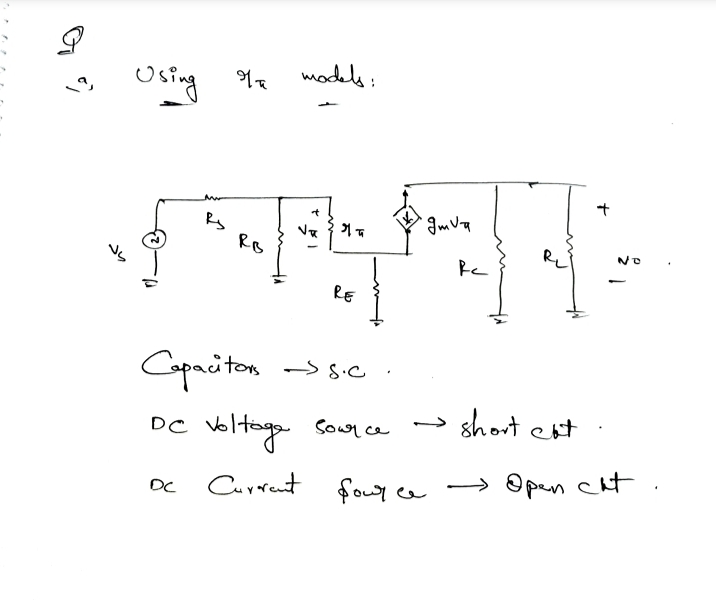 Q
a, Using rπ models:
Vs
Rs
RB
+
Vπ
-
rπ
RE
gmVπ
RC
RL
+
Vo
-
Capacitors → S.C.
DC Voltage source → short ckt.
DC Current source → Open ckt.